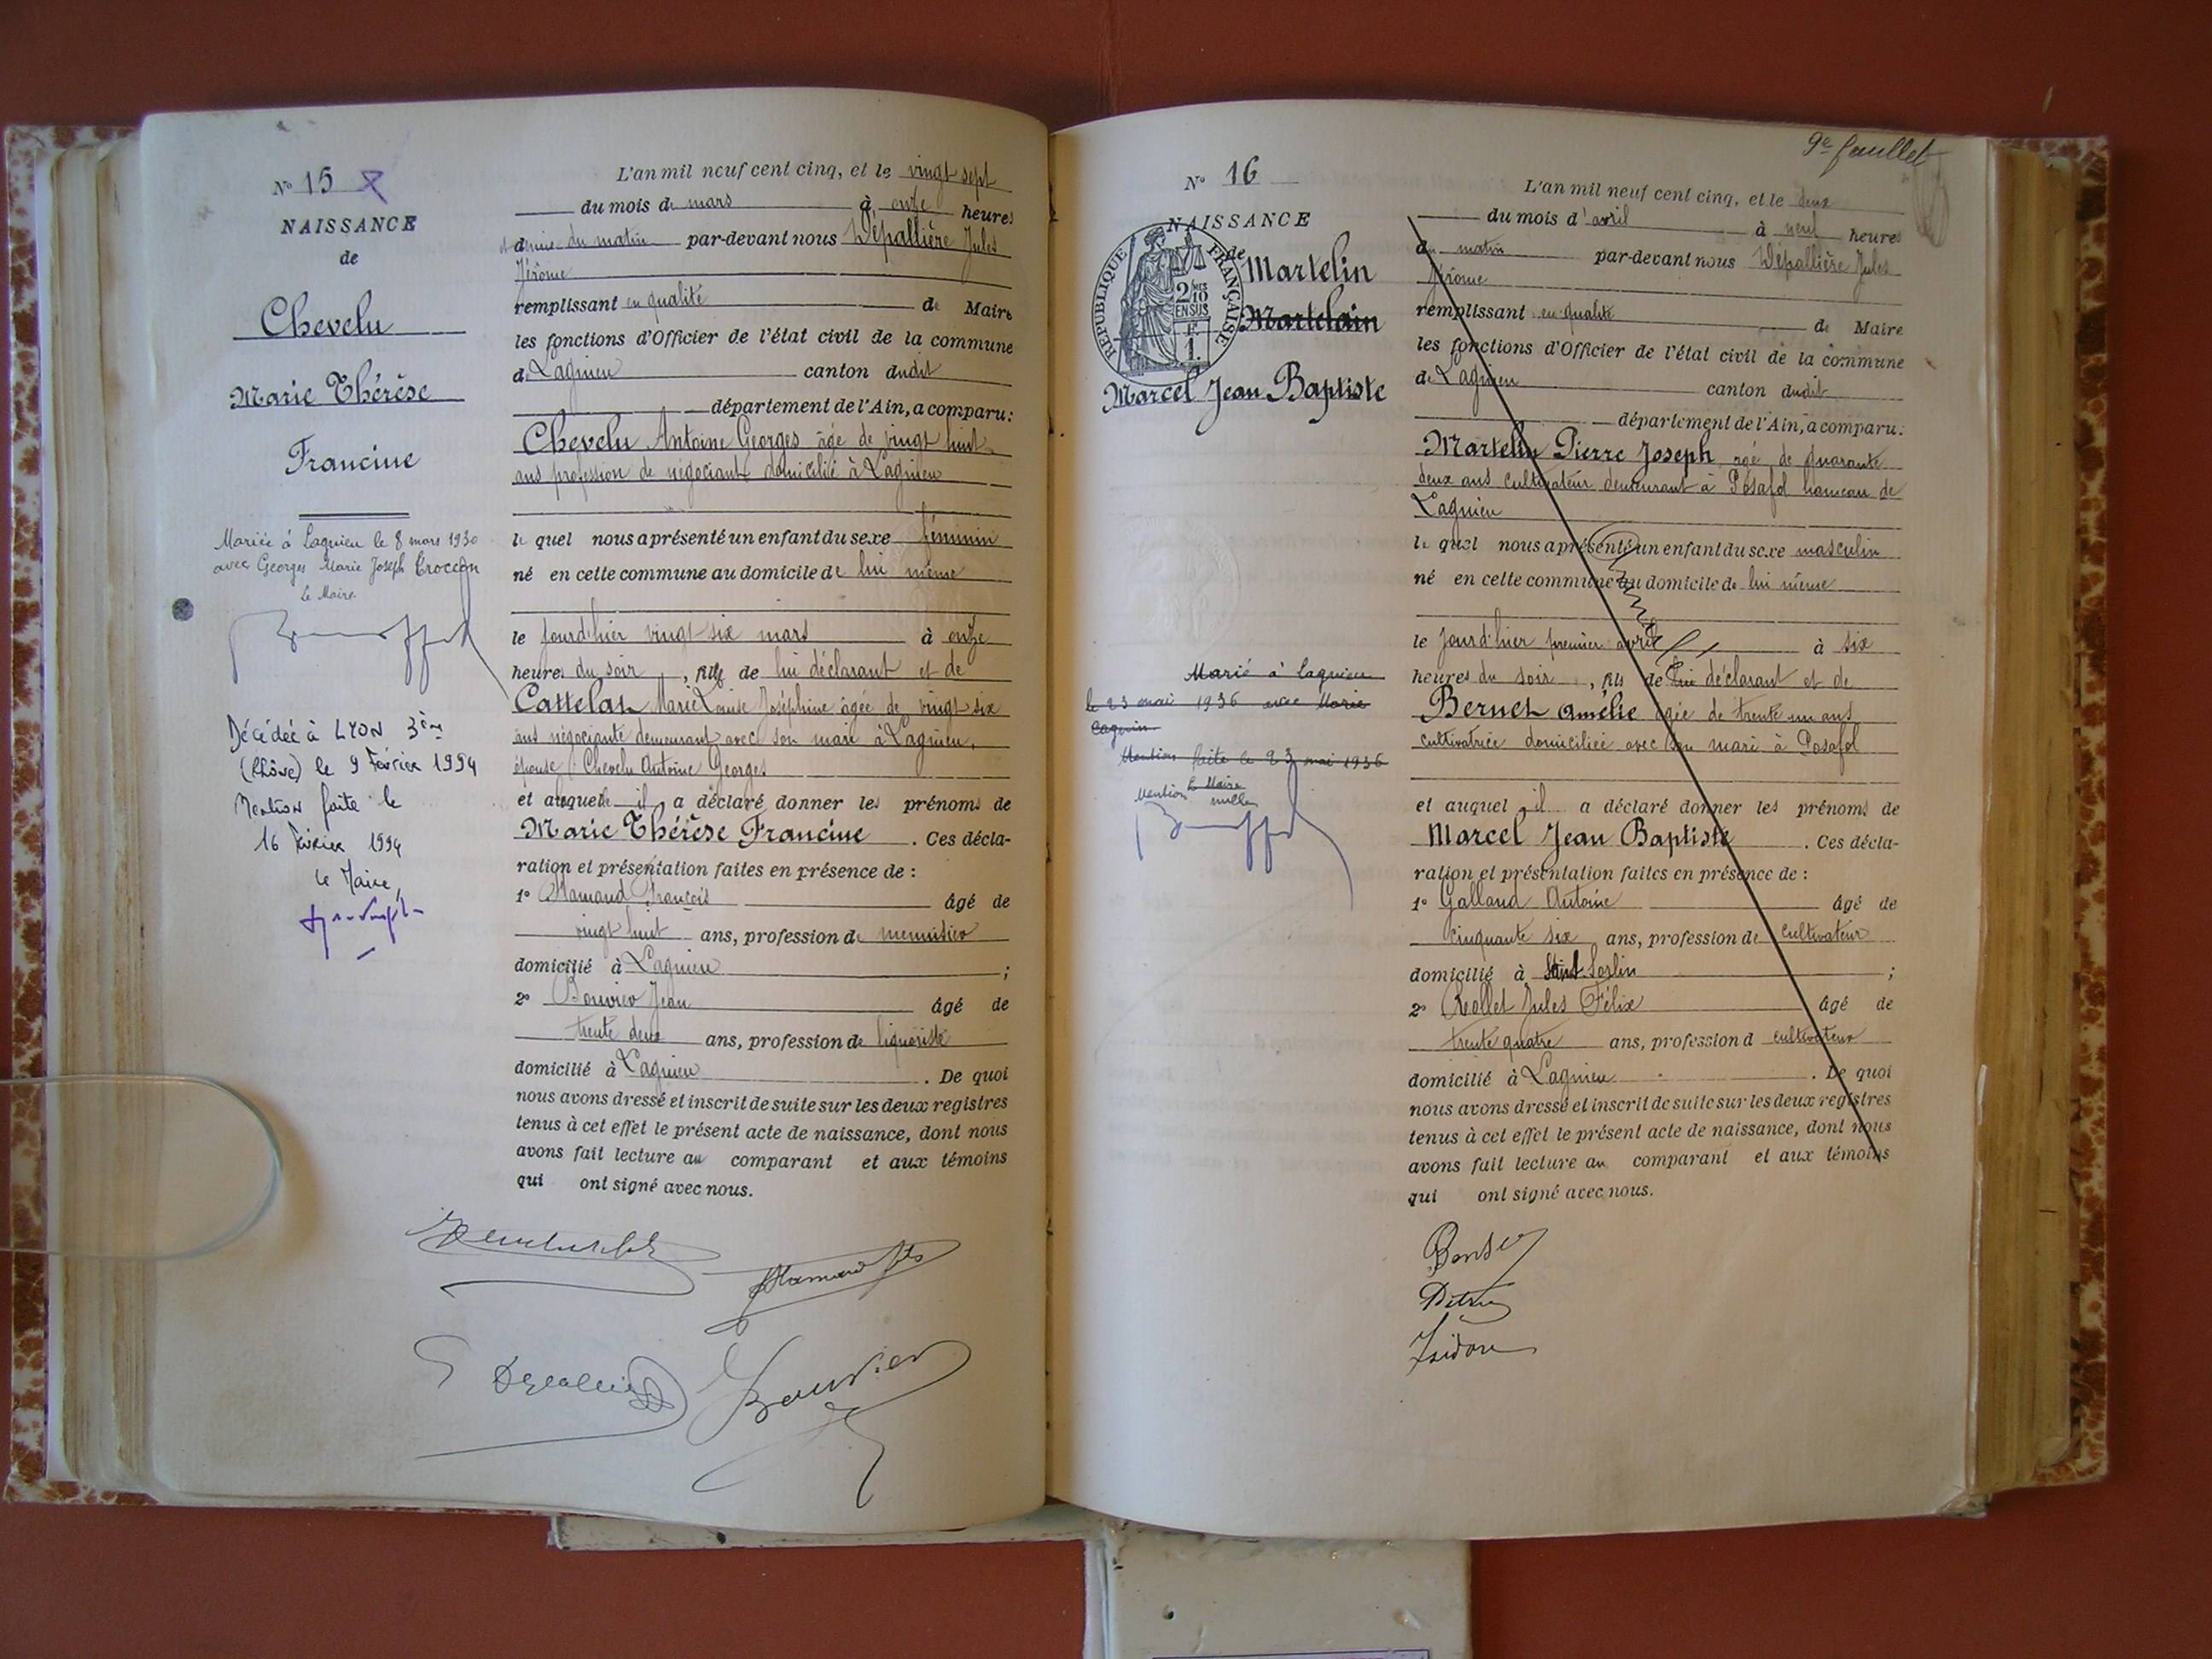 N° 15
NAISSANCE
de
Chevelu
Marie Thérèse
Francine
Mariée à Lagnieu le 8 mars 1930
avec Georges Marie Joseph
Le Maire
Décédée à LYON 3ème
(Rhône) le 9 Février 1994
Mention faite le
16 Février 1994
Le Maire,
L'an mil neuf cent cinq, et le vingt sept
du mois de mars à onze heures
et demie du matin par-devant nous Dépallière Jules
Jérôme
remplissant en qualité de Maire
les fonctions d'Officier de l'état civil de la commune
de Lagnieu canton dudit
département de l'Ain, a comparu:
Chevelu Antoine Georges âgé de vingt huit
ans profession de négociant domicilié à Lagnieu
le quel nous a présenté un enfant du sexe féminin
né en cette commune au domicile de lui même
le jourd'hier vingt six mars à onze
heures du soir, fille de lui déclarant et de
Cattelan Marie Louise Joséphine âgée de vingt six
ans négociante demeurant avec son mari à Lagnieu,
épouse Chevelu Antoine Georges
et auquel il a déclaré donner les prénoms de
Marie Thérèse Francine. Ces décla-
ration et présentation faites en présence de :
1° Mamand François âgé de
vingt huit ans, profession de menuisier
domicilié à Lagnieu ;
2° Bouvier Jean âgé de
trente deux ans, profession de liquoriste
domicilié à Lagnieu. De quoi
nous avons dressé et inscrit de suite sur les deux registres
tenus à cet effet le présent acte de naissance, dont nous
avons fait lecture au comparant et aux témoins
qui ont signé avec nous.
Bouvier
9e feuillet
N° 16
NAISSANCE
de
RÉPUBLIQUE FRANÇAISE
2/10 MES
EN SUS
F
1.
Martelin
Martelain
Marcel Jean Baptiste
Marié à Lagnieu
le 23 mai 1936 avec Marie
Mention faite le 23 mai 1936
Le Maire
Mention nulle
L'an mil neuf cent cinq, et le deux
du mois d'avril à neuf heures
du matin par-devant nous Dépallière Jules
Jérome
remplissant en qualité de Maire
les fonctions d'Officier de l'état civil de la commune
de Lagnieu canton dudit
département de l'Ain, a comparu:
Martelin Pierre Joseph âgé de quarante
deux ans cultivateur demeurant à Posafol hameau de
Lagnieu
le quel nous a présenté un enfant du sexe masculin
né en cette commune au domicile de lui même
le jourd'hier premier avril à six
heures du soir, fils de lui déclarant et de
Bernet Amélie âgée de trente un ans
cultivatrice domiciliée avec son mari à Posafol
et auquel il a déclaré donner les prénoms de
Marcel Jean Baptiste. Ces décla-
ration et présentation faites en présence de :
1° Galland Antoine âgé de
cinquante six ans, profession de cultivateur
domicilié à Saint Sorlin ;
2° Rollet Jules Félix âgé de
trente quatre ans, profession d cultivateur
domicilié à Lagnieu. De quoi
nous avons dressé et inscrit de suite sur les deux registres
tenus à cet effet le présent acte de naissance, dont nous
avons fait lecture au comparant et aux témoins
qui ont signé avec nous.
Isidore